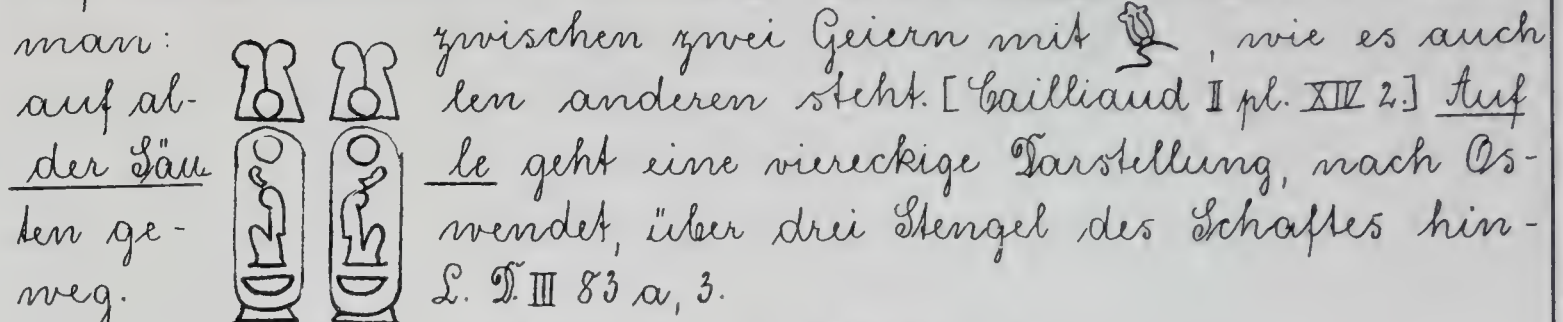 man: zwischen zwei Geiern mit , wie es auch
auf al- len anderen steht. [Cailliaud II pl. XIV 2.] Auf
der Säu le geht eine viereckige Darstellung, nach Os-
ten ge- wendet, über drei Stengel des Schaftes hin-
weg. L. D. III 83 a, 3.